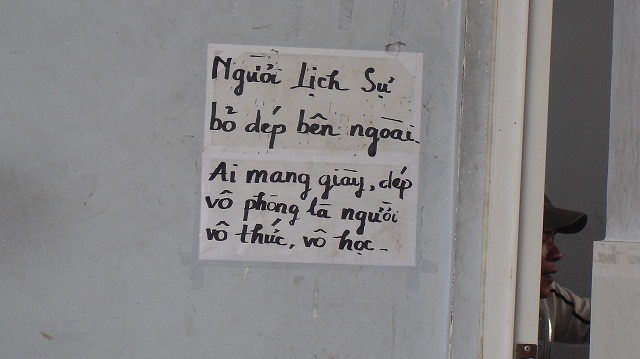 Người Lịch Sự
bỏ dép bên ngoài.
Ai mang giày, dép
vô phòng là người
vô thức, vô học.